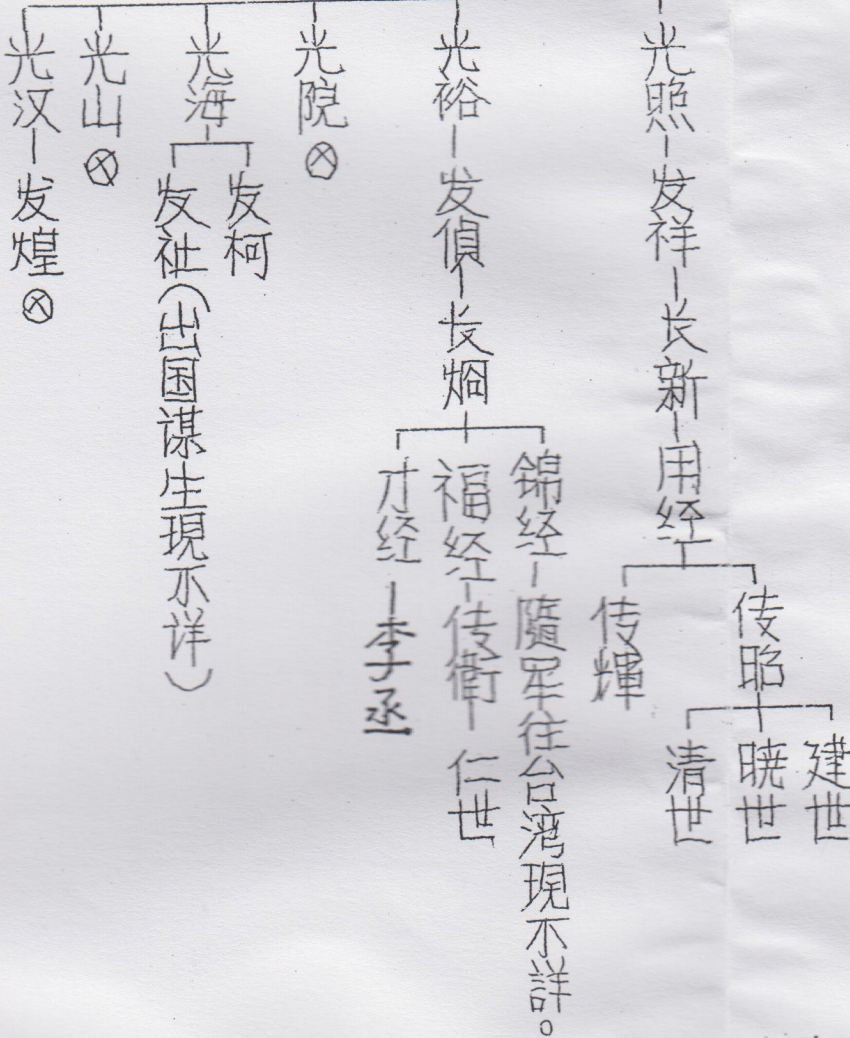 光照
发祥
长新
用经
传昭
建世
暁世
清世
传輝
光裕
发偵
长烱
錦经
隨军往台湾現不詳。
福经
传衛
仁世
才经
李丞
光院
ⓧ
光海
发柯
发祉（出国谋生現不详）
光山
ⓧ
光汉
发煌
ⓧ